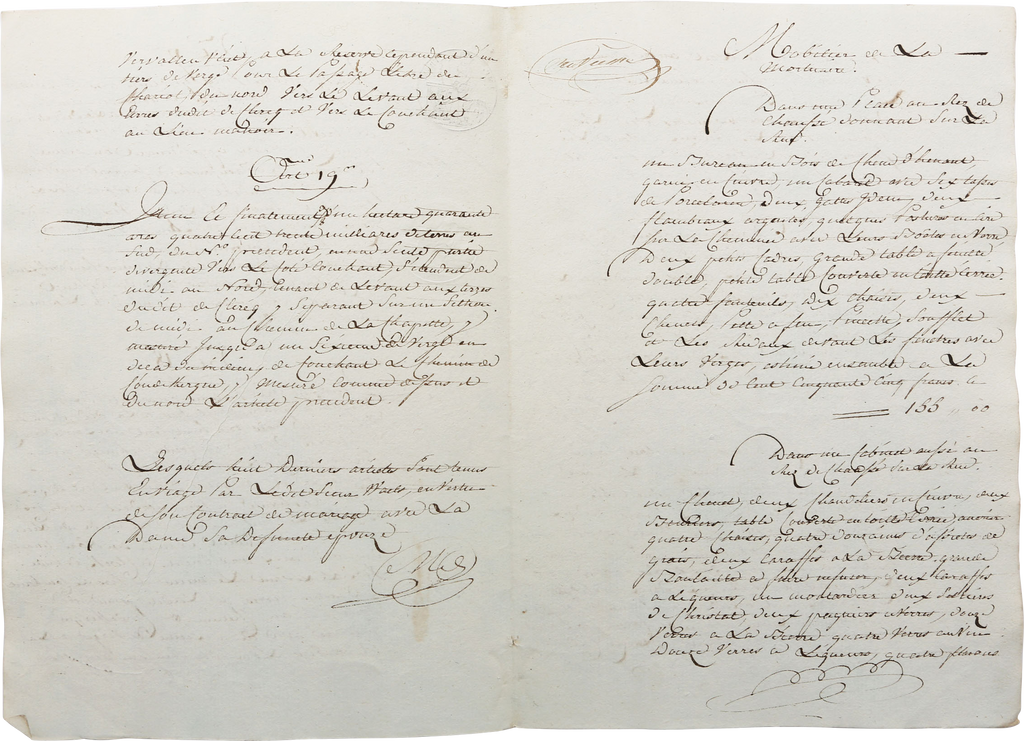 vers allen l'est, a La Reserve cependant d'un
tiers de verge pour Le passage Libre du
Chariot, du nord vers Le Levant aux
terres dudit de Clercq et vers Le Couchant
au Lieu manoir.
Art. 19e
Item Le finalement d'un hectare quarante
ares quatre cent trente milliares de terre au
Sud, du No. précédent, en une seule partie
divergente vers Le Coté Couchant, s'étendant de
midi au Nord, tenant de Levant aux terres
dudit de Clercq, y Separant sur un
de midi au Chemin de La Chapelle, y
mesuré jusqu'a un Sixieme de Verge en
deca du milieu, de Couchant Le Chemin de
Coudekerque, y Mesuré Comme dessus et
Du nord L'article précédent.
Lesquels huit Derniers articles Sont tenus
En viage Par Ledit Sieur Waels, en vertu
de son Contrat de mariage avec La
Dame Sa Defuncte epouze
Mobilier de La
Mortuaire.
Dans une Place au Rez de
Chaussé donnant Sur La
Rue.
un Bureau en Bois de Chene d'henant,
garni en Cuivre, un Cabaret avec Six tasses
de Porcelaine, Deux, deux
flambeaux argentés, quelques en Cire
sur La Cheminée avec Leurs Boëtes en Verre,
Deux petits Cadres, grande table a feuille
double, petite table Couverte en toille Cirée,
quatre fauteuils, dix chaises, deux
Chenets, Pelle a feu, Pincette, Soufflet
et Les Rideaux devant Les fenêtres avec
Leurs Verges, estimé ensemble a La
Somme de Cent Cinquante Cinq francs. a
155 ,, 00
Dans un Cabinet aussi au
Rez de Chaussé sur La Rue.
un Chenet, deux Chandeliers en Cuivre, deux
table Couverte en toille Cirée,
quatre Chaises, quatre douzaines d'assietes de
grais, deux Caraffes a La Bierre, grande
Bouteille a faire infuser, deux Caraffes
a Liqueurs, un moutardier deux
de Christal, deux pagniers a Verres, douze
Verres a La Bierre quatre Verres au Vin
Douze Verres a Liqueurs, quatre flacons